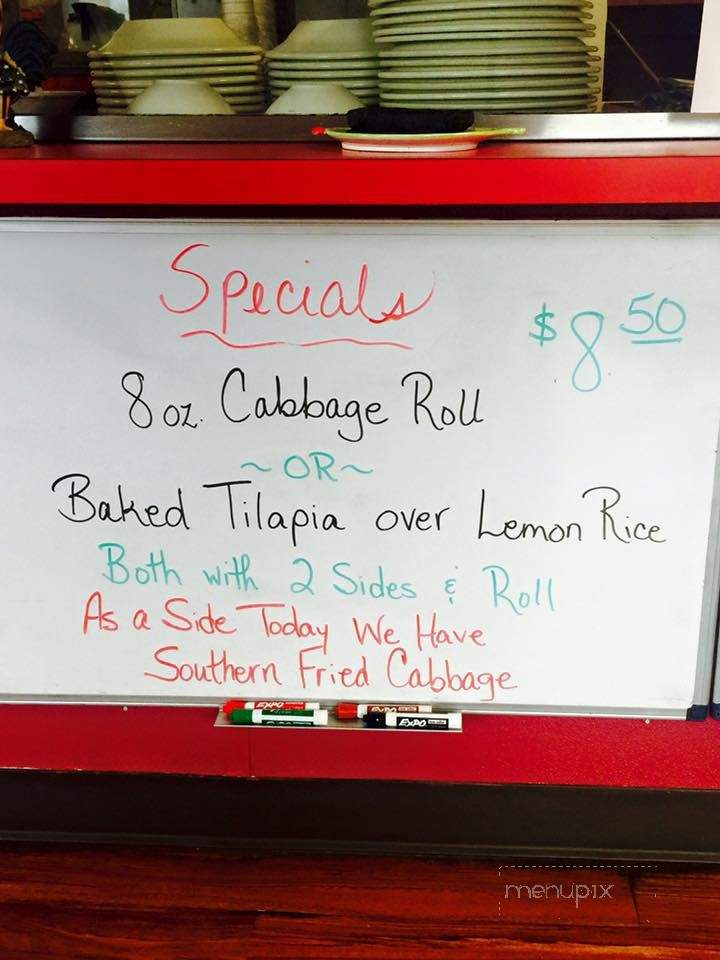 Specials
$8.50
8 oz. Cabbage Roll
~OR~
Baked Tilapia over Lemon Rice
Both with 2 Sides & Roll
As a Side Today We Have
Southern Fried Cabbage
EXPO EXPO
EXPO
menupix